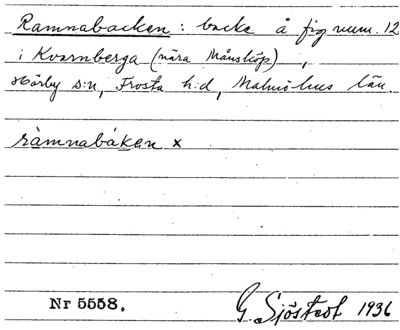 Ramnabacken: backe å fig num. 12
i Kvarnberga (nära Månsköp),
Hörby s:n, Frosta h:d, Malmöhus län.
ràmnabáken x
Nr 5558.
G. Sjöstedt 1936